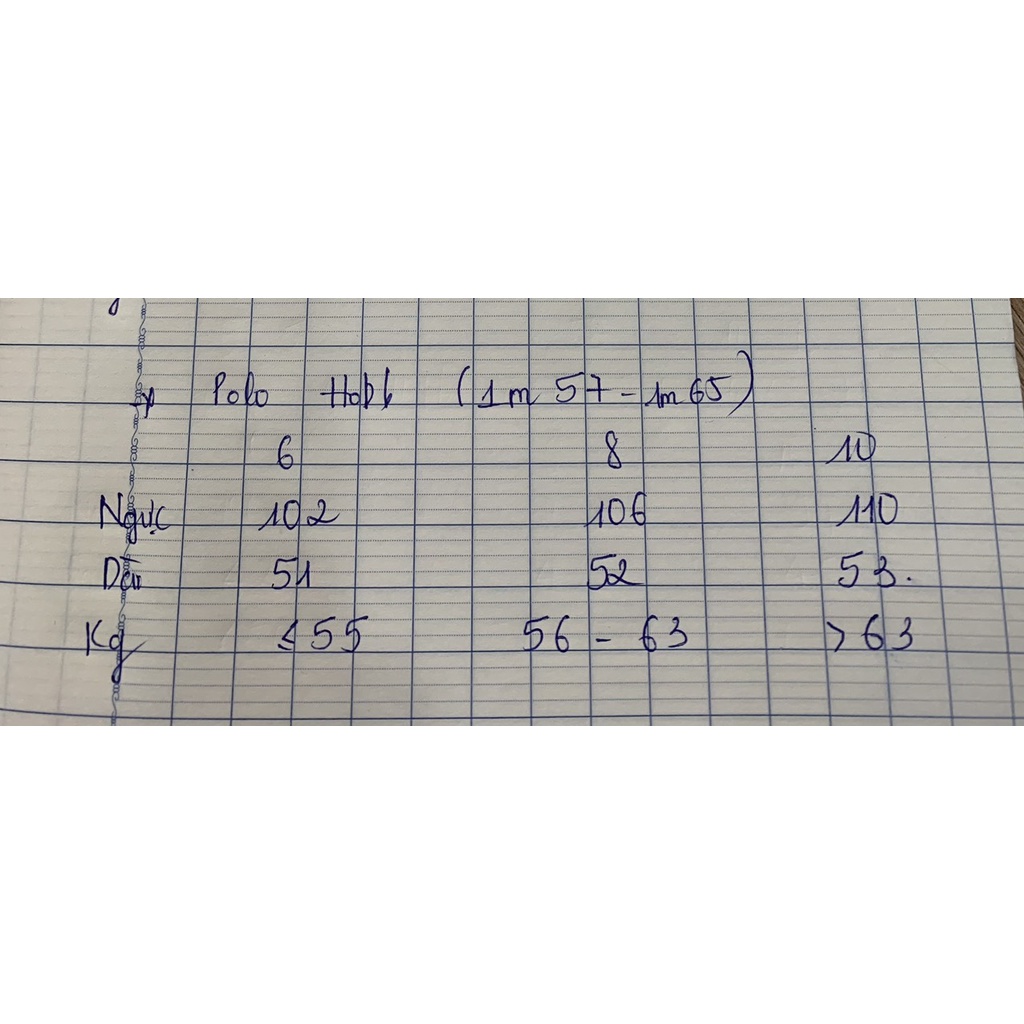 Polo (1m 57 - 1m 65)
6 8 10
Ngực 102 106 110
Dài 51 52 53.
Kg ≤ 55 56 - 63 > 63